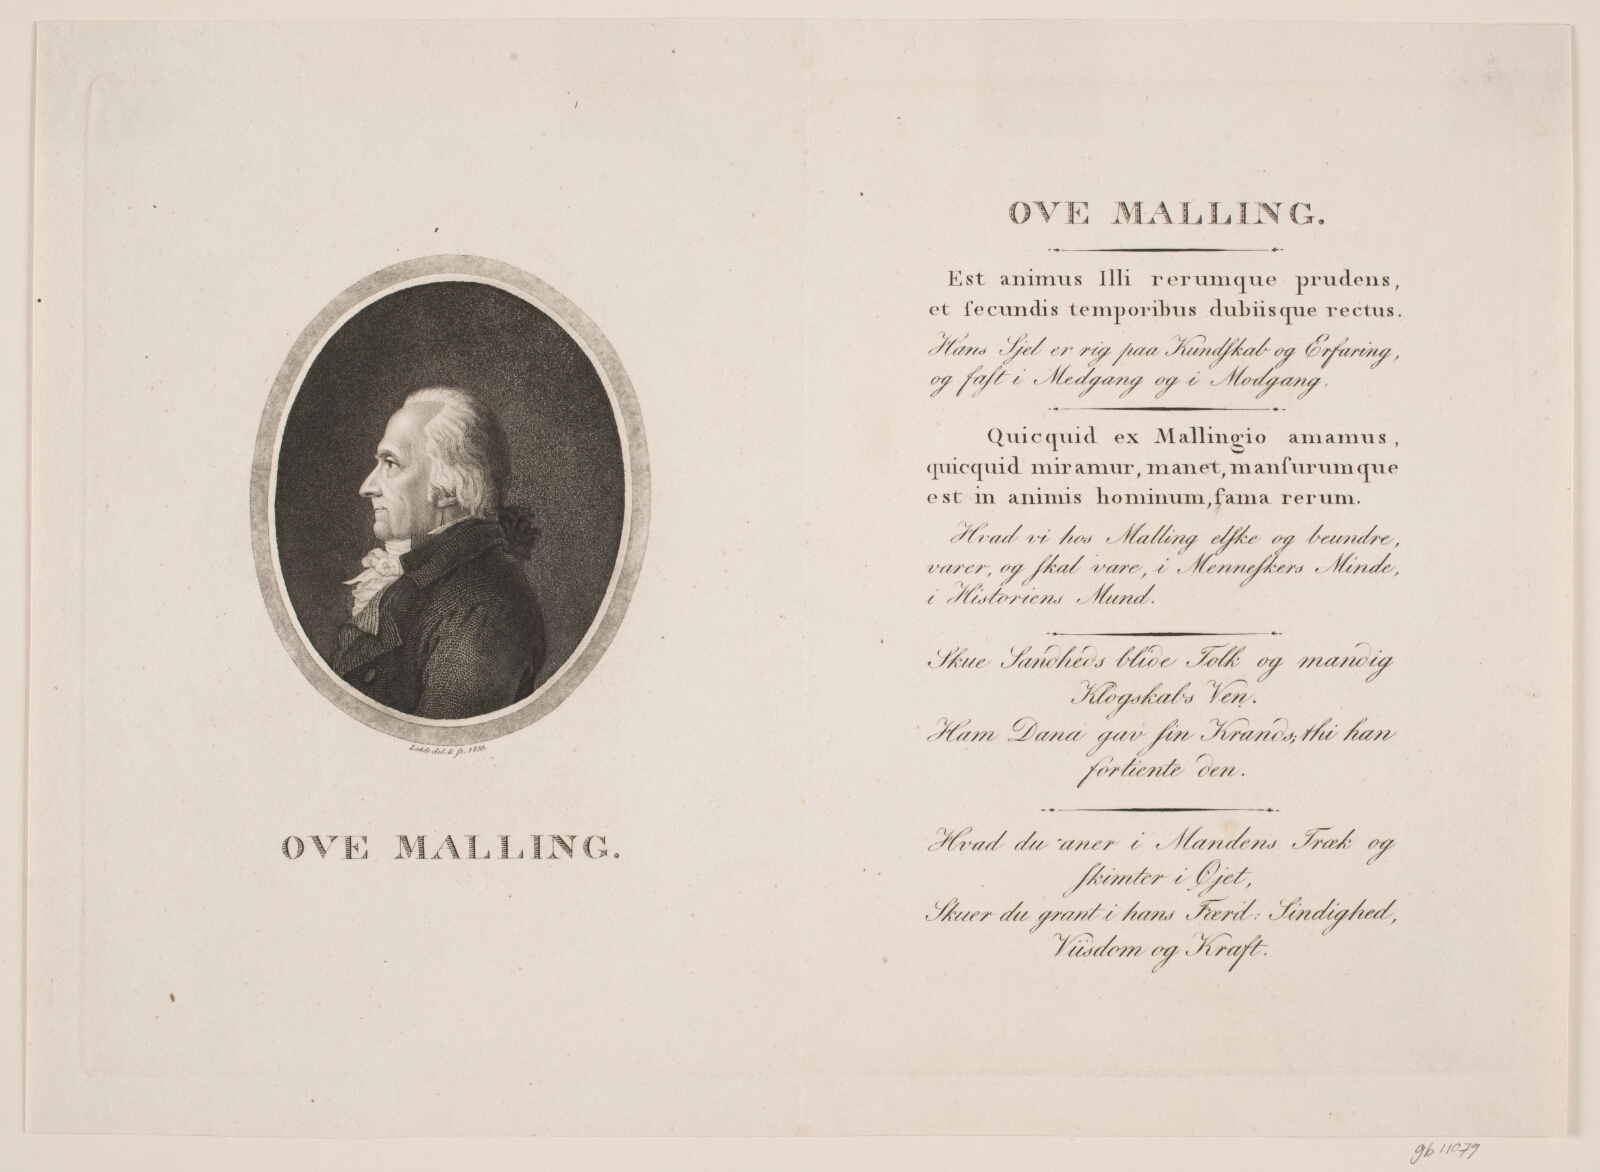 OVE MALLING.
Lahde del. & sc. 1810.
OVE MALLING.
Est animus Illi rerumque prudens,
et ſecundis temporibus dubiisque rectus.
Hans Sjel er rig paa Kundſkab og Erfaring,
og faſt i Medgang og i Modgang.
Quicquid ex Mallingio amamus,
quicquid miramur, manet, manſurumque
est in animis hominum, fama rerum.
Hvad vi hos Malling elſke og beundre,
varer, og ſkal vare, i Menneſkers Minde,
i Historiens Mund.
Skue Sandheds blide Tolk og mandig
Klogskabs Ven.
Ham Dana gav ſin Krands; thi han
fortiente den.
Hvad du aner i Mandens Træk og
ſkimter i Øjet,
Skuer du grant i hans Færd: Sindighed,
Viisdom og Kraft.
gb 11079